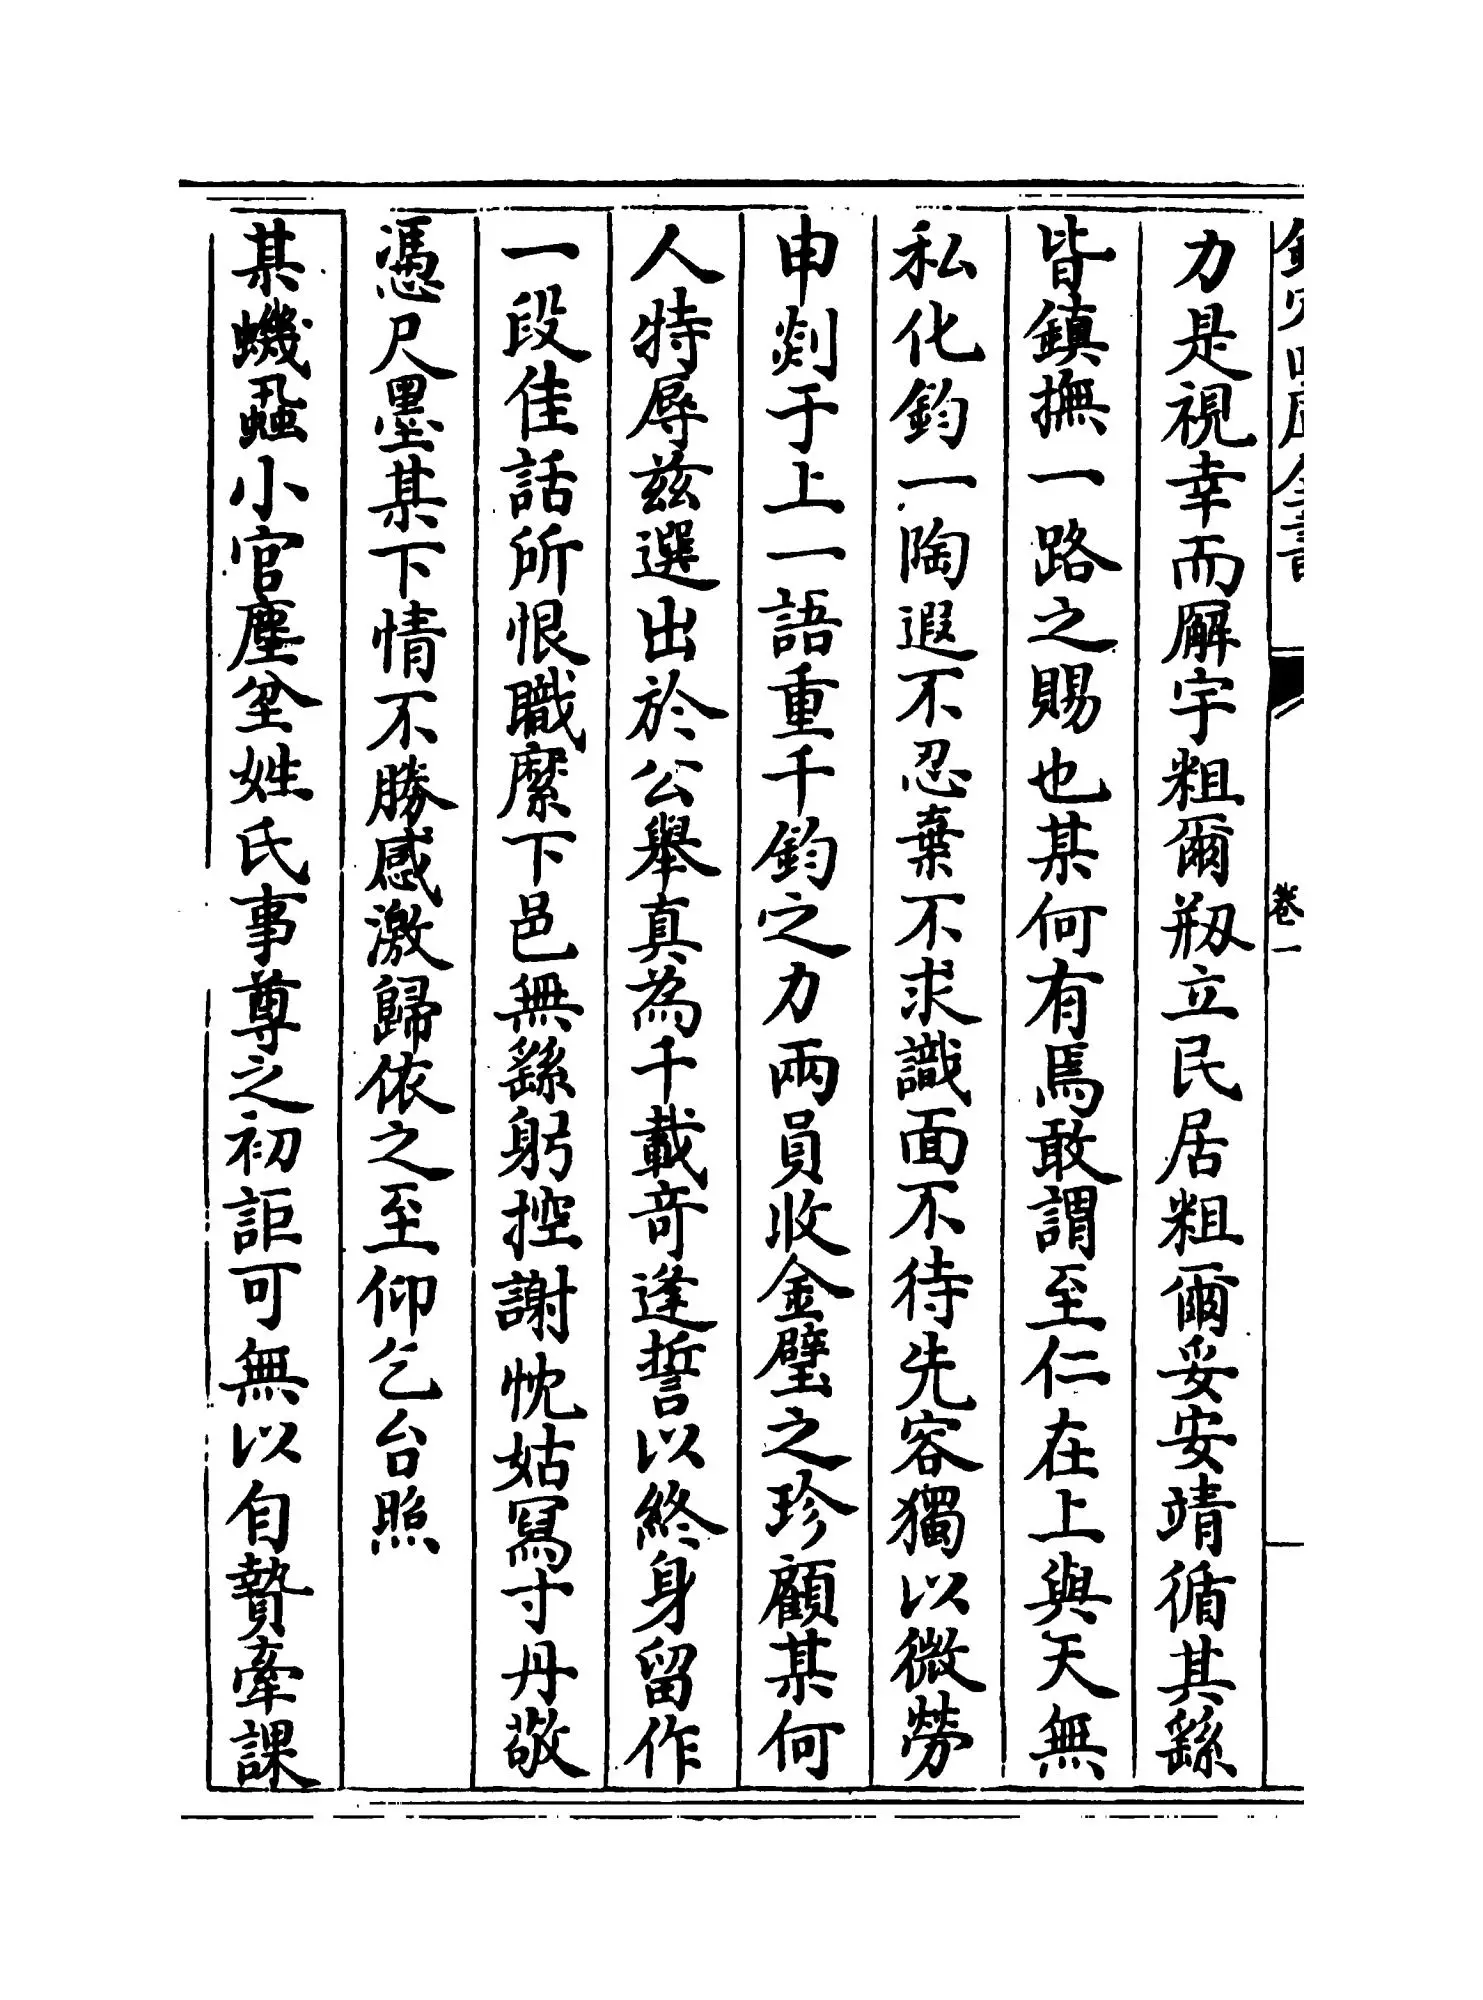 欽定四庫全書
卷一
力是視幸而廨宇粗爾剏立民居粗爾妥安靖循其繇
皆鎮撫一路之賜也某何有焉敢謂至仁在上與天無
私化鈞一陶遐不忍棄不求識面不待先容獨以微勞
申剡于上一語重千鈞之力兩員收金璧之珍顧某何
人特辱兹選出於公舉真為千載竒逢誓以終身留作
一段佳話所恨職縻下邑無繇躬控謝忱姑冩寸丹敬
憑尺墨某下情不勝感激歸依之至仰乞台照
某蟣蝨小官塵坌姓氏事尊之初詎可無以自贄牽課